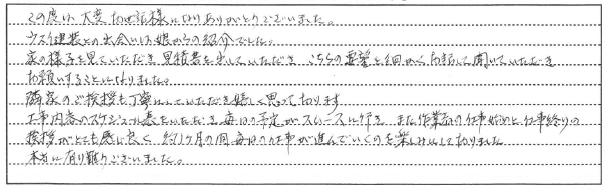 この度は、大変お世話様になりありがとうございました。
ウスイ建装との出会いは娘からの紹介でした。
家の様子を見ていただき見積書を出していただき、こちらの要望を細かく対応して聞いていただき
お願いすることになりました。
隣家のご挨拶も丁寧にしていただき嬉しく思っております。
工事内容のスケジュール表をいただき毎日の予定がスムースに行き、また作業員の仕事始めと仕事終りの
挨拶がとても感じ良く約1ヶ月の間毎日の仕事が進んでいくのを楽しみにしておりました
本当に有り難うございました。